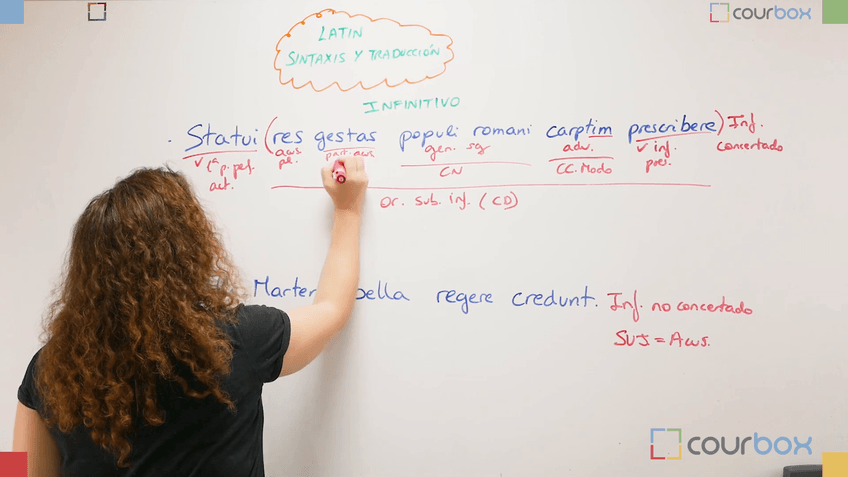 courbox
LATIN
SINTAXIS Y TRADUCCIÓN
INFINITIVO
Statui (res gestas populi romani carptim prescribere) Inf.
concertado
acus part. acus gen. sg adv. v inf.
pl. pres.
v 1ª p. perf.
act.
CN CC. Modo
Or. sub. inf. (CD)
Martem bella regere credunt. Inf. no concertado
SUJ = Acus.
courbox